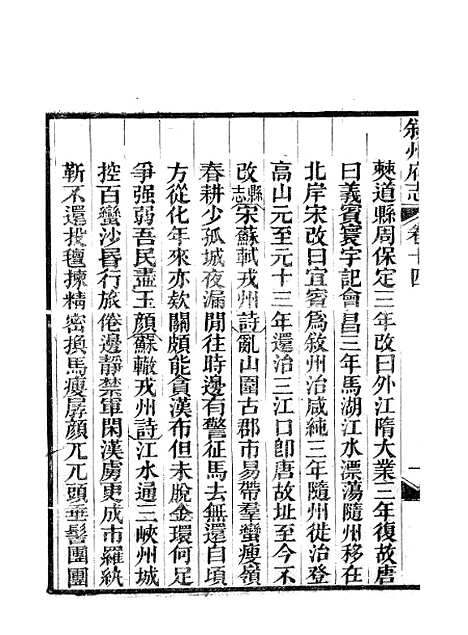 敘州府志 卷十四 一
僰道縣周保定三年改曰外江隋大業三年復故唐
曰義賓寰宇記會昌三年馬湖江水漂蕩隨州移在
北岸宋改曰宜賓爲敘州治咸純三年隨州徙治登
高山元至元十三年還治三江口卽唐故址至今不
改縣志宋蘇軾戎州詩亂山圍古郡市易帶羣蠻瘦嶺
春耕少孤城夜漏閒往時邊有警征馬去無還自頃
方從化年來亦欵關頗能貪漢布但未脫金環何足
爭强弱吾民盡玉顏蘇轍戎州詩江水通三峽州城
控百蠻沙昬行旅倦邊靜禁軍閑漢虜更成市羅紈
靳不還投氊揀精密換馬瘦孱顏兀兀頭垂髻團團